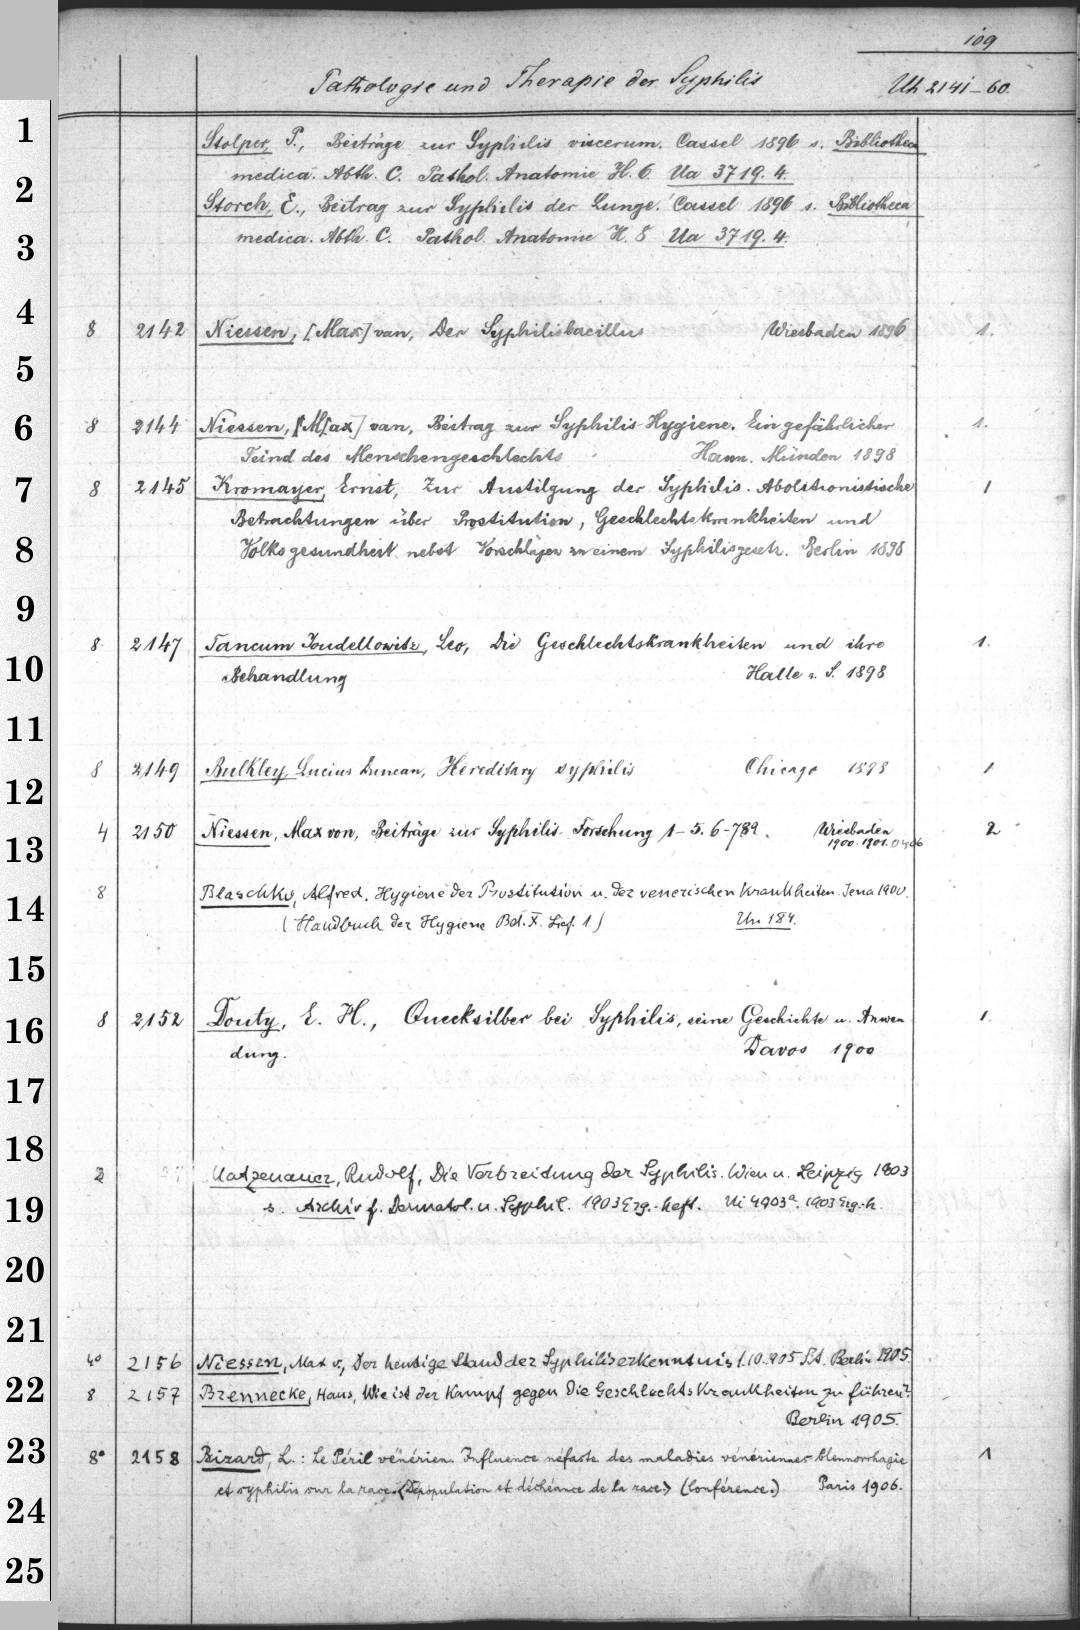 109
Pathologie und Therapie der Syphilis Uh 2141-60.
1
Stolper, P., Beiträge zur Syphilis viscerum. Cassel 1896 s. Bibliotheca
medica. Abth. C. Pathol. Anatomie H. 6. Ua 3719. 4.
2
Storch, E., Beitrag zur Syphilis der Lunge. Cassel 1896 s. Bibliotheca
medica. Abth. C. Pathol. Anatomie H. 8 Ua 3719. 4.
3
4
8 2142 Niessen, [Max] van, Der Syphilisbacillus Wiesbaden 1896 1.
5
6
8 2144 Niessen, M[ax] van, Beitrag zur Syphilis-Hygiene. Ein gefährlicher 1.
Feind des Menschengeschlechts Hann. Münden 1898
7
8 2145 Kromayer, Ernst, Zur Austilgung der Syphilis. Abolitionistische 1
Betrachtungen über Prostitution, Geschlechtskrankheiten und
8
Volksgesundheit nebst Vorschlägen zu einem Syphilisgesetz. Berlin 1898
9
8 2147 Leo, Die Geschlechtskrankheiten und ihre 1.
10
Behandlung Halle a. S. 1898
11
8 2149 Bulkley, Lucius Duncan, Hereditary syphilis Chicago 1898 1
12
4 2150 Niessen, Max von, Beiträge zur Syphilis-Forschung 1-5. 6-789. Wiesbaden 2
1900. 1901. 04 06
13
8 Blaschko, Alfred. Hygiene der Prostitution u. der venerischen Krankheiten. Jena 1900.
14
(Handbuch der Hygiene Bd. X. Lief. 1) Un 184.
15
8 2152 Douty, E. H., Quecksilber bei Syphilis, seine Geschichte u. Anwen 1.
16
dung. Davos 1900
17
18
2 Matzenauer, Rudolf, Die Verbreidung der Syphilis. Wien u. Leipzig 1903
19
s. Archiv f. Dermatol. u. Syphil. 1903 Erg.-heft. Ui 4903ª. 1903 Erg.-h.
20
21
4° 2156 Niessen, Max v., Der heutige Stand der Syphiliserkenntnis Berlin 1905
22
8 2157 Brennecke, Hans, Wie ist der Kampf gegen die Geschlechtskrankheiten zu führen?
Berlin 1905.
23
8° 2158 Bizard, L.: Le Péril vénérien. Influence néfaste des maladies vénériennes blennorrhagie 1
et syphilis sur la race. <Dépopulation et déchéance de la race> (Conférence.) Paris 1906.
24
25